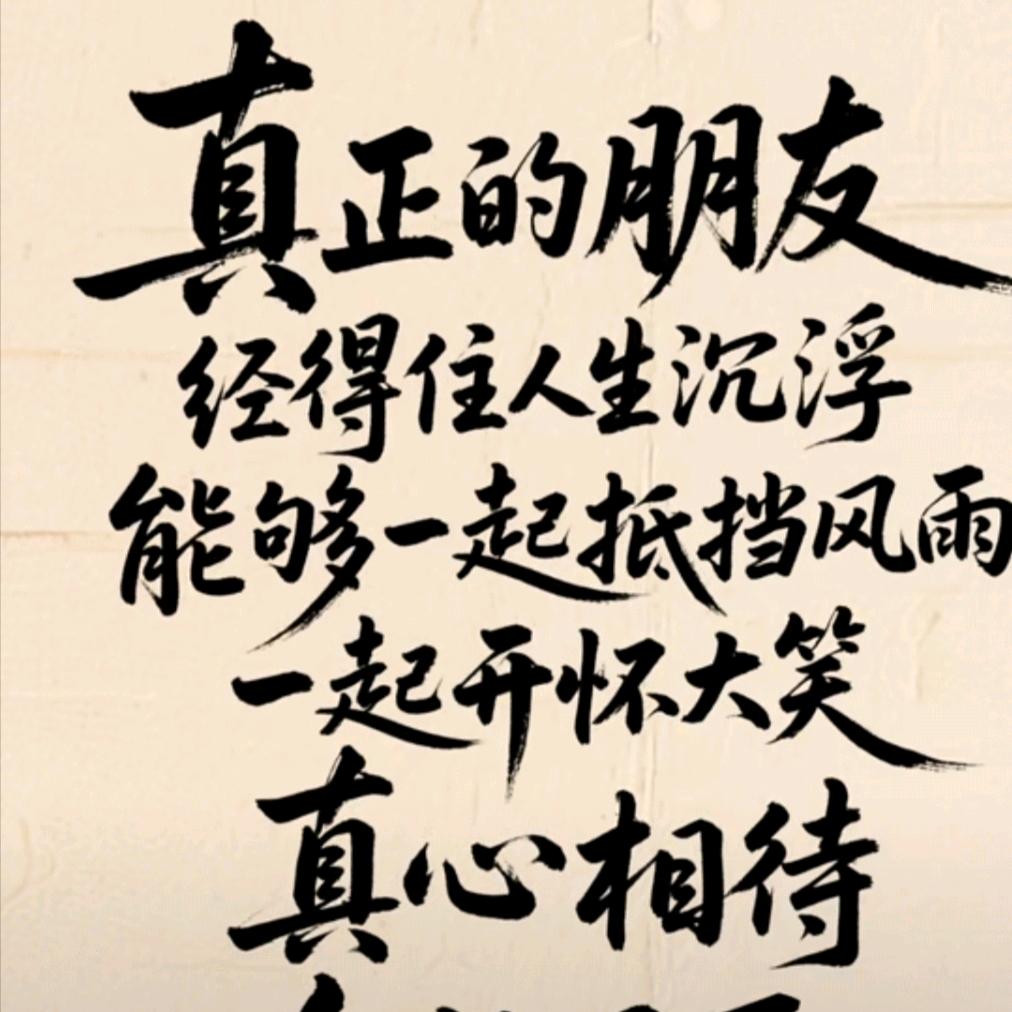 真正的朋友
经得住人生沉浮
能够一起抵挡风雨
一起开怀大笑
真心相待